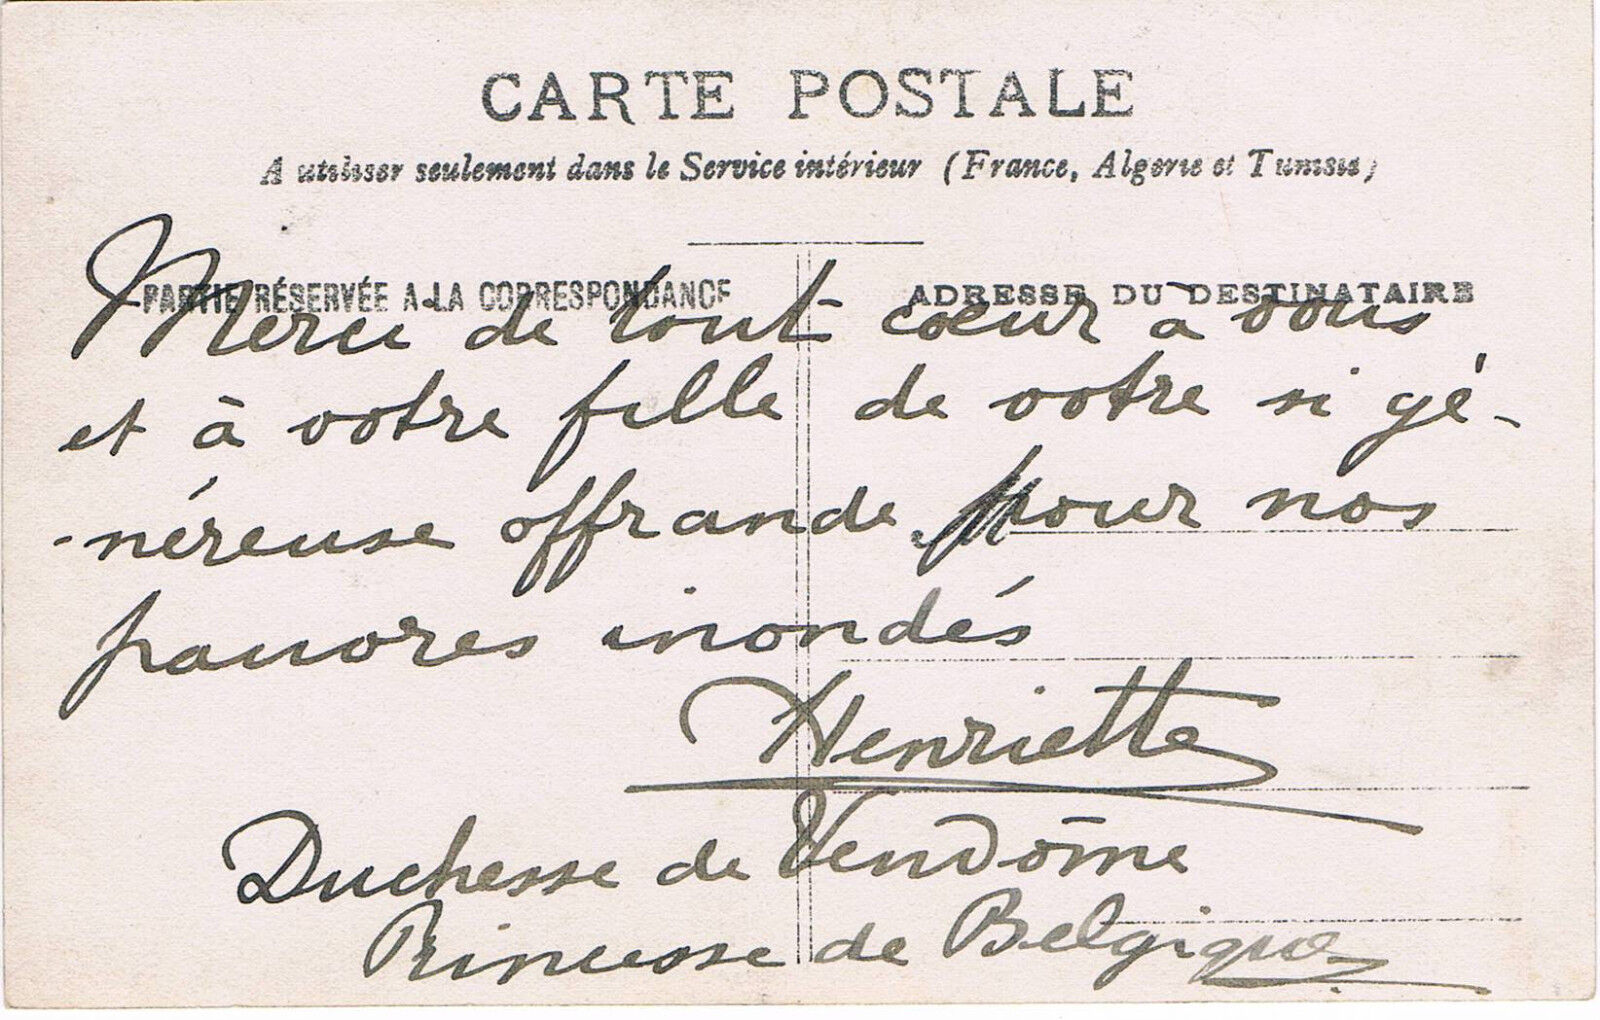 CARTE POSTALE
A utiliser seulement dans le Service intérieur (France, Algérie et Tunisie)
PARTIE RÉSERVÉE A LA CORRESPONDANCE
ADRESSE DU DESTINATAIRE
Merci de tout cœur à vous
et à votre fille de votre si gé-
-néreuse offrande pour nos
pauvres inondés
Henriette
Duchesse de Vendôme
Princesse de Belgique